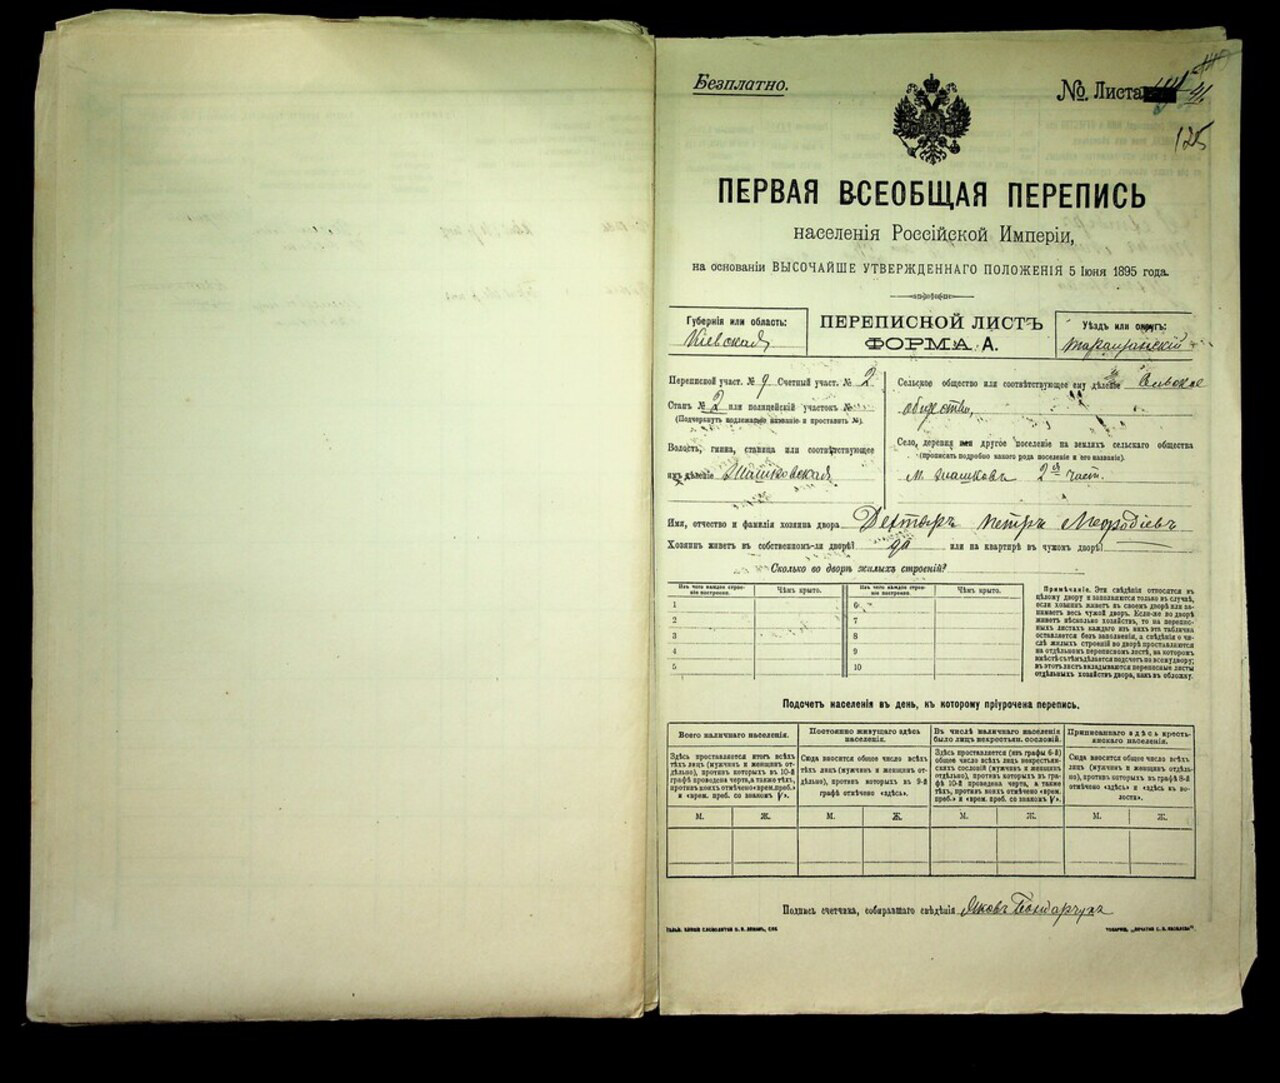 Безплатно.
№ Листа 41.
125
ПЕРВАЯ ВСЕОБЩАЯ ПЕРЕПИСЬ
населенія Россійской Имперіи,
на основаніи ВЫСОЧАЙШЕ УТВЕРЖДЕННАГО ПОЛОЖЕНІЯ 5 Іюня 1895 года.
Губернія или область:
Кіевская
ПЕРЕПИСНОЙ ЛИСТЪ
ФОРМА А.
Уѣздъ или округъ:
Таращанскій
Переписной участ. № 9 Счетный участ. № 2
Станъ № 2 или полицейскій участокъ №
(Подчеркнуть надлежащее названіе и проставить №).
Волость, гмина, станица или соотвѣтствующее
имъ дѣленіе Жашковская
Сельское общество или соотвѣтствующее ему дѣленіе Сельское
общество,
Село, деревня или другое поселеніе на земляхъ сельскаго общества
(прописать подробно какого рода поселеніе и его названіе).
м. Жашковъ 2я част.
Имя, отчество и фамилія хозяина двора Дехтяръ Петръ Меѳодіевъ
Хозяинъ живетъ въ собственномъ-ли дворѣ? да или на квартирѣ въ чужомъ дворѣ?
Сколько во дворѣ жилыхъ строеній?
Изъ чего каждое строеніе построено.
Чѣмъ крыто.
Изъ чего каждое строеніе построено.
Чѣмъ крыто.
1 6
2 7
3 8
4 9
5 10
Примѣчаніе. Эти свѣдѣнія относятся къ
цѣлому двору и заполняются только въ случаѣ,
если хозяинъ живетъ въ своемъ дворѣ или занимаетъ
весь чужой дворъ. Если-же во дворѣ
живетъ нѣсколько хозяйствъ, то на переписныхъ
листахъ каждаго изъ нихъ эта табличка
оставляется безъ заполненія, а свѣдѣнія о числѣ
жилыхъ строеній во дворѣ проставляются
на отдѣльномъ переписномъ листѣ, на которомъ
вмѣстѣ съ тѣмъ дѣлается подсчетъ по всему двору;
въ этотъ листъ вкладываются переписные листы
отдѣльныхъ хозяйствъ двора, какъ въ обложку.
Подсчетъ населенія въ день, къ которому пріурочена перепись.
Всего наличнаго населенія.
Постоянно живущаго здѣсь
населенія.
Въ числѣ наличнаго населенія
было лицъ некрестьян. сословій.
Приписаннаго здѣсь крестьянскаго
населенія.
Здѣсь проставляется итогъ всѣхъ
тѣхъ лицъ (мужчинъ и женщинъ отдѣльно),
противъ которыхъ въ 10-й
графѣ проведена черта, а также тѣхъ,
противъ коихъ отмѣчено «врем. преб.»
и «врем. преб. со знакомъ V».
Сюда вносится общее число всѣхъ
тѣхъ лицъ (мужчинъ и женщинъ отдѣльно),
противъ которыхъ въ 9-й
графѣ отмѣчено «здѣсь».
Здѣсь проставляется (изъ графы 6-й)
общее число всѣхъ лицъ некрестьянскихъ
сословій (мужчинъ и женщинъ
отдѣльно), противъ которыхъ въ графѣ
10-й проведена черта, а также
тѣхъ, противъ коихъ отмѣчено «врем.
преб.» и «врем. преб. со знакомъ V».
Сюда вносится общее число всѣхъ
лицъ (мужчинъ и женщинъ отдѣльно),
противъ которыхъ въ графѣ 8-й
отмѣчено «здѣсь» и «здѣсь въ волости».
М. Ж. М. Ж. М. Ж. М. Ж.
Подпись счетчика, собиравшаго свѣдѣнія Яковъ Бондарчукъ